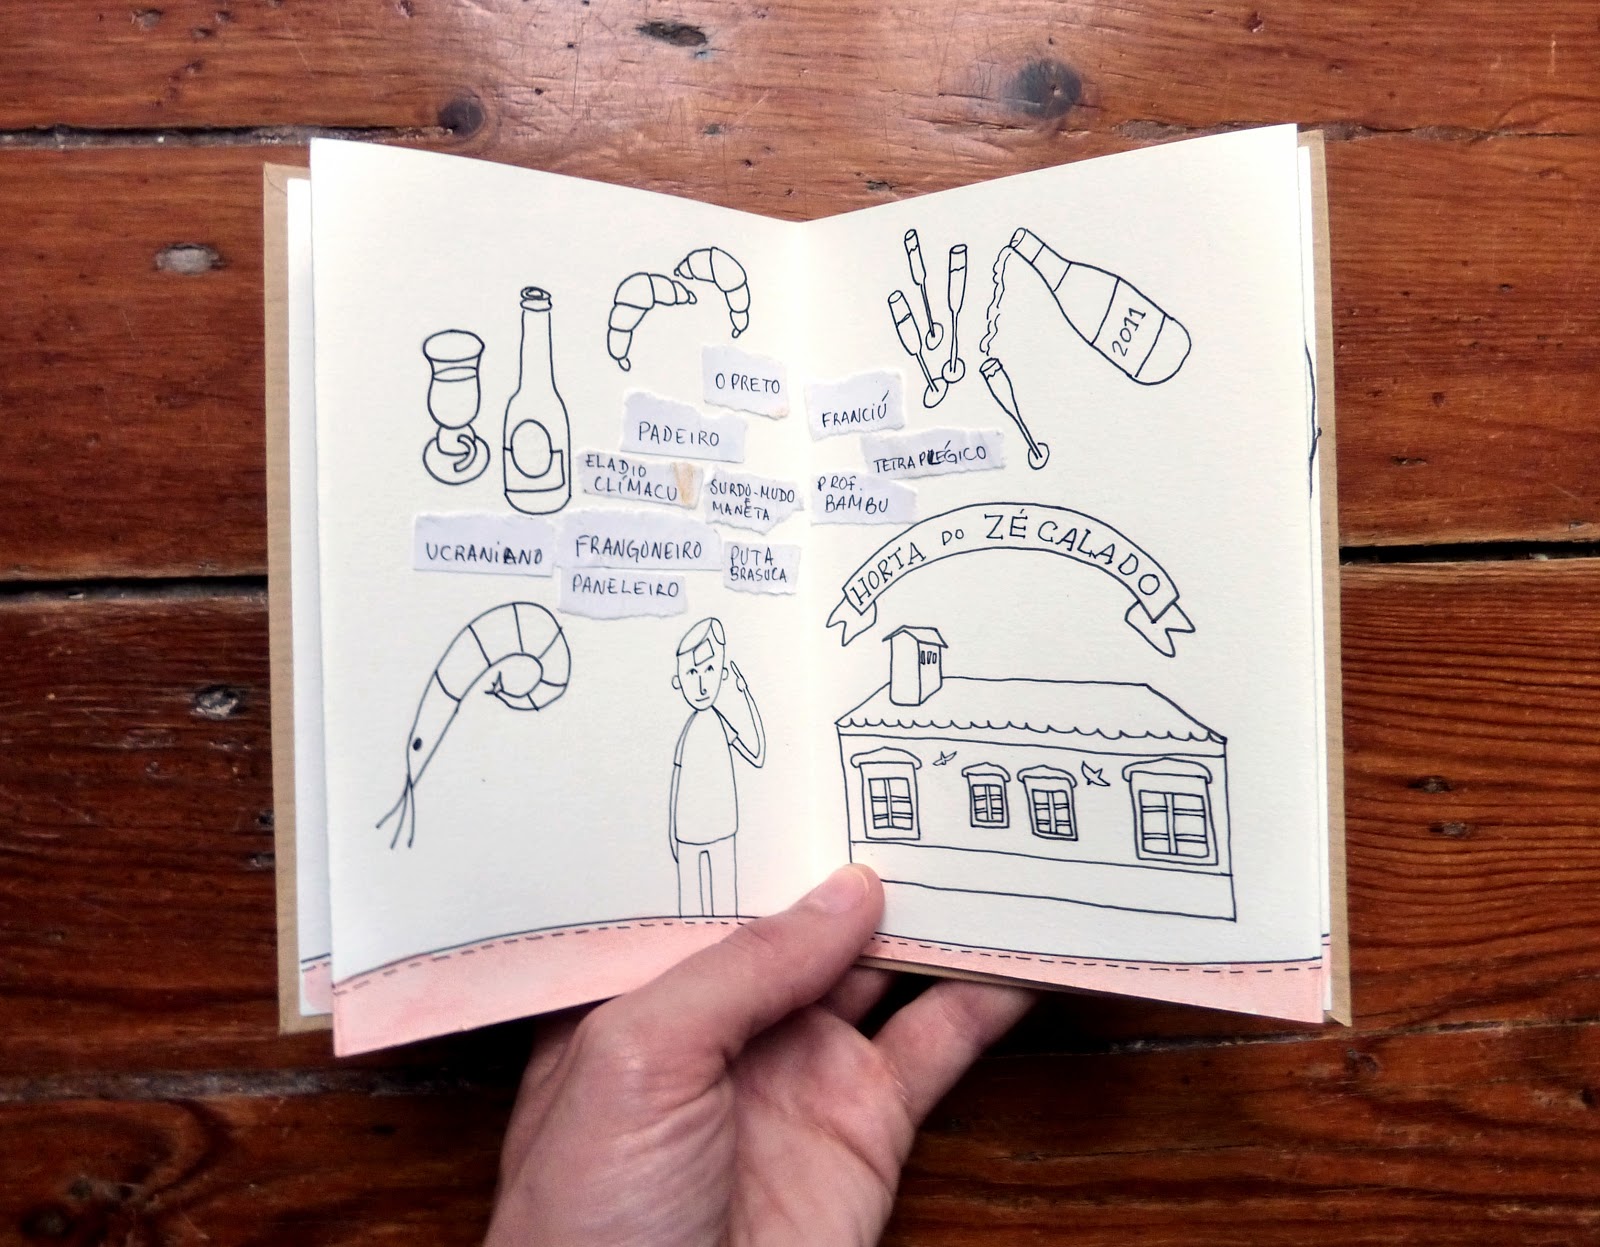 O PRETO
PADEIRO
ELADIO
CLÍMACU
SURDO-MUDO
E
MANETA
UCRANIANO
FRANGONEIRO
PUTA
BRASUCA
PANELEIRO
2011
FRANCIÚ
TETRAPLÉGICO
PROF.
BAMBU
HORTA DO ZÉ CALADO